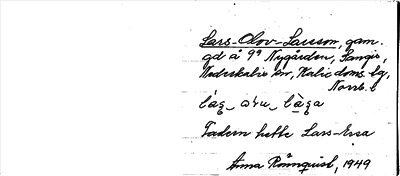 Lars-Olov-Larsson, gam.
gd å 9ª Nygården, Sangis,
Nederkalix sn, Kalix doms. lg,
Norrb. l
Fadern hette Lars-Ersa
Anna Rönnquist, 1949